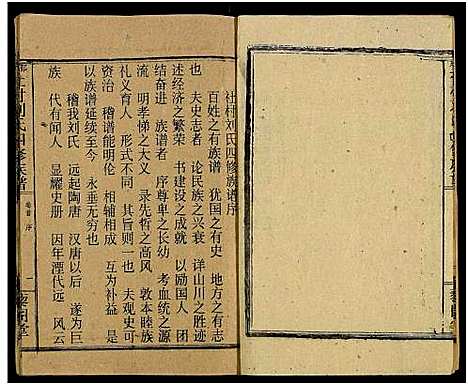 社村刘氏四修族谱序
百姓之有族谱　犹国之有史　地方之有志
也　夫史志者　论民族之兴衰　详山川之胜迹
述经济之繁荣　书建设之成就　以励国人　团
结奋进　族谱者　序尊卑之伦次　考血统之源
流　明孝悌之大义　录先哲之高风　敦本睦族
礼义育人　形式不同　其理一也　夫观史可
资治　稽谱能明伦　相辅相成　互为补益　是
以族谱延续至今　永垂无穷也
稽我刘氏　远起陶唐　汉唐以后　遂为巨
族　代有闻人　显耀史册　因年湮代远　风云
村刘氏四修族谱
卷首　序
一